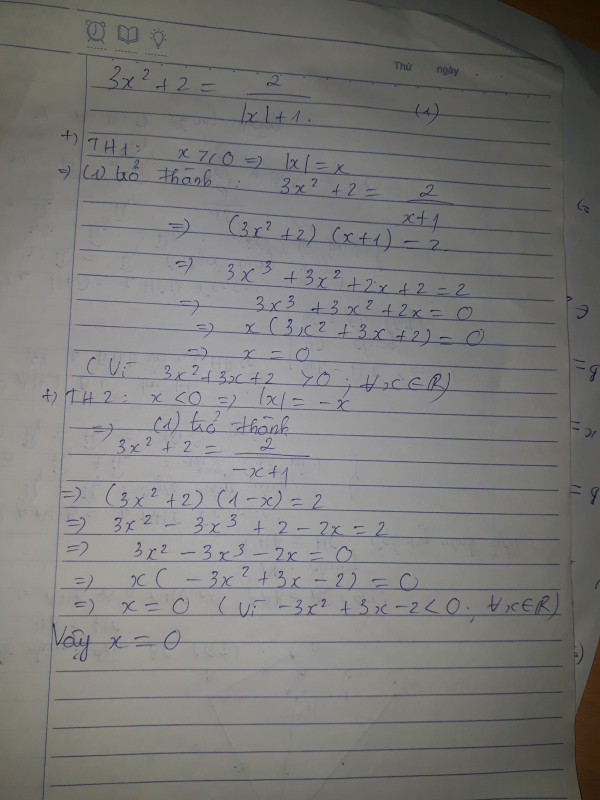 Thứ ngày
3x² + 2 = 2/(|x|+1). (1)
+) TH1: x ≥ 0 => |x| = x
=> (1) trở thành: 3x² + 2 = 2/(x+1)
=> (3x² + 2) (x+1) = 2
=> 3x³ + 3x² + 2x + 2 = 2
=> 3x³ + 3x² + 2x = 0
=> x (3x² + 3x + 2) = 0
=> x = 0
(Vì 3x² + 3x + 2 > 0; ∀x∈R)
+) TH2: x < 0 => |x| = -x
=> (1) trở thành
3x² + 2 = 2/(-x+1)
=> (3x² + 2) (1-x) = 2
=> 3x² - 3x³ + 2 - 2x = 2
=> 3x² - 3x³ - 2x = 0
=> x( -3x² + 3x - 2) = 0
=> x = 0 (Vì -3x² + 3x - 2 < 0; ∀x∈R)
Vậy x = 0